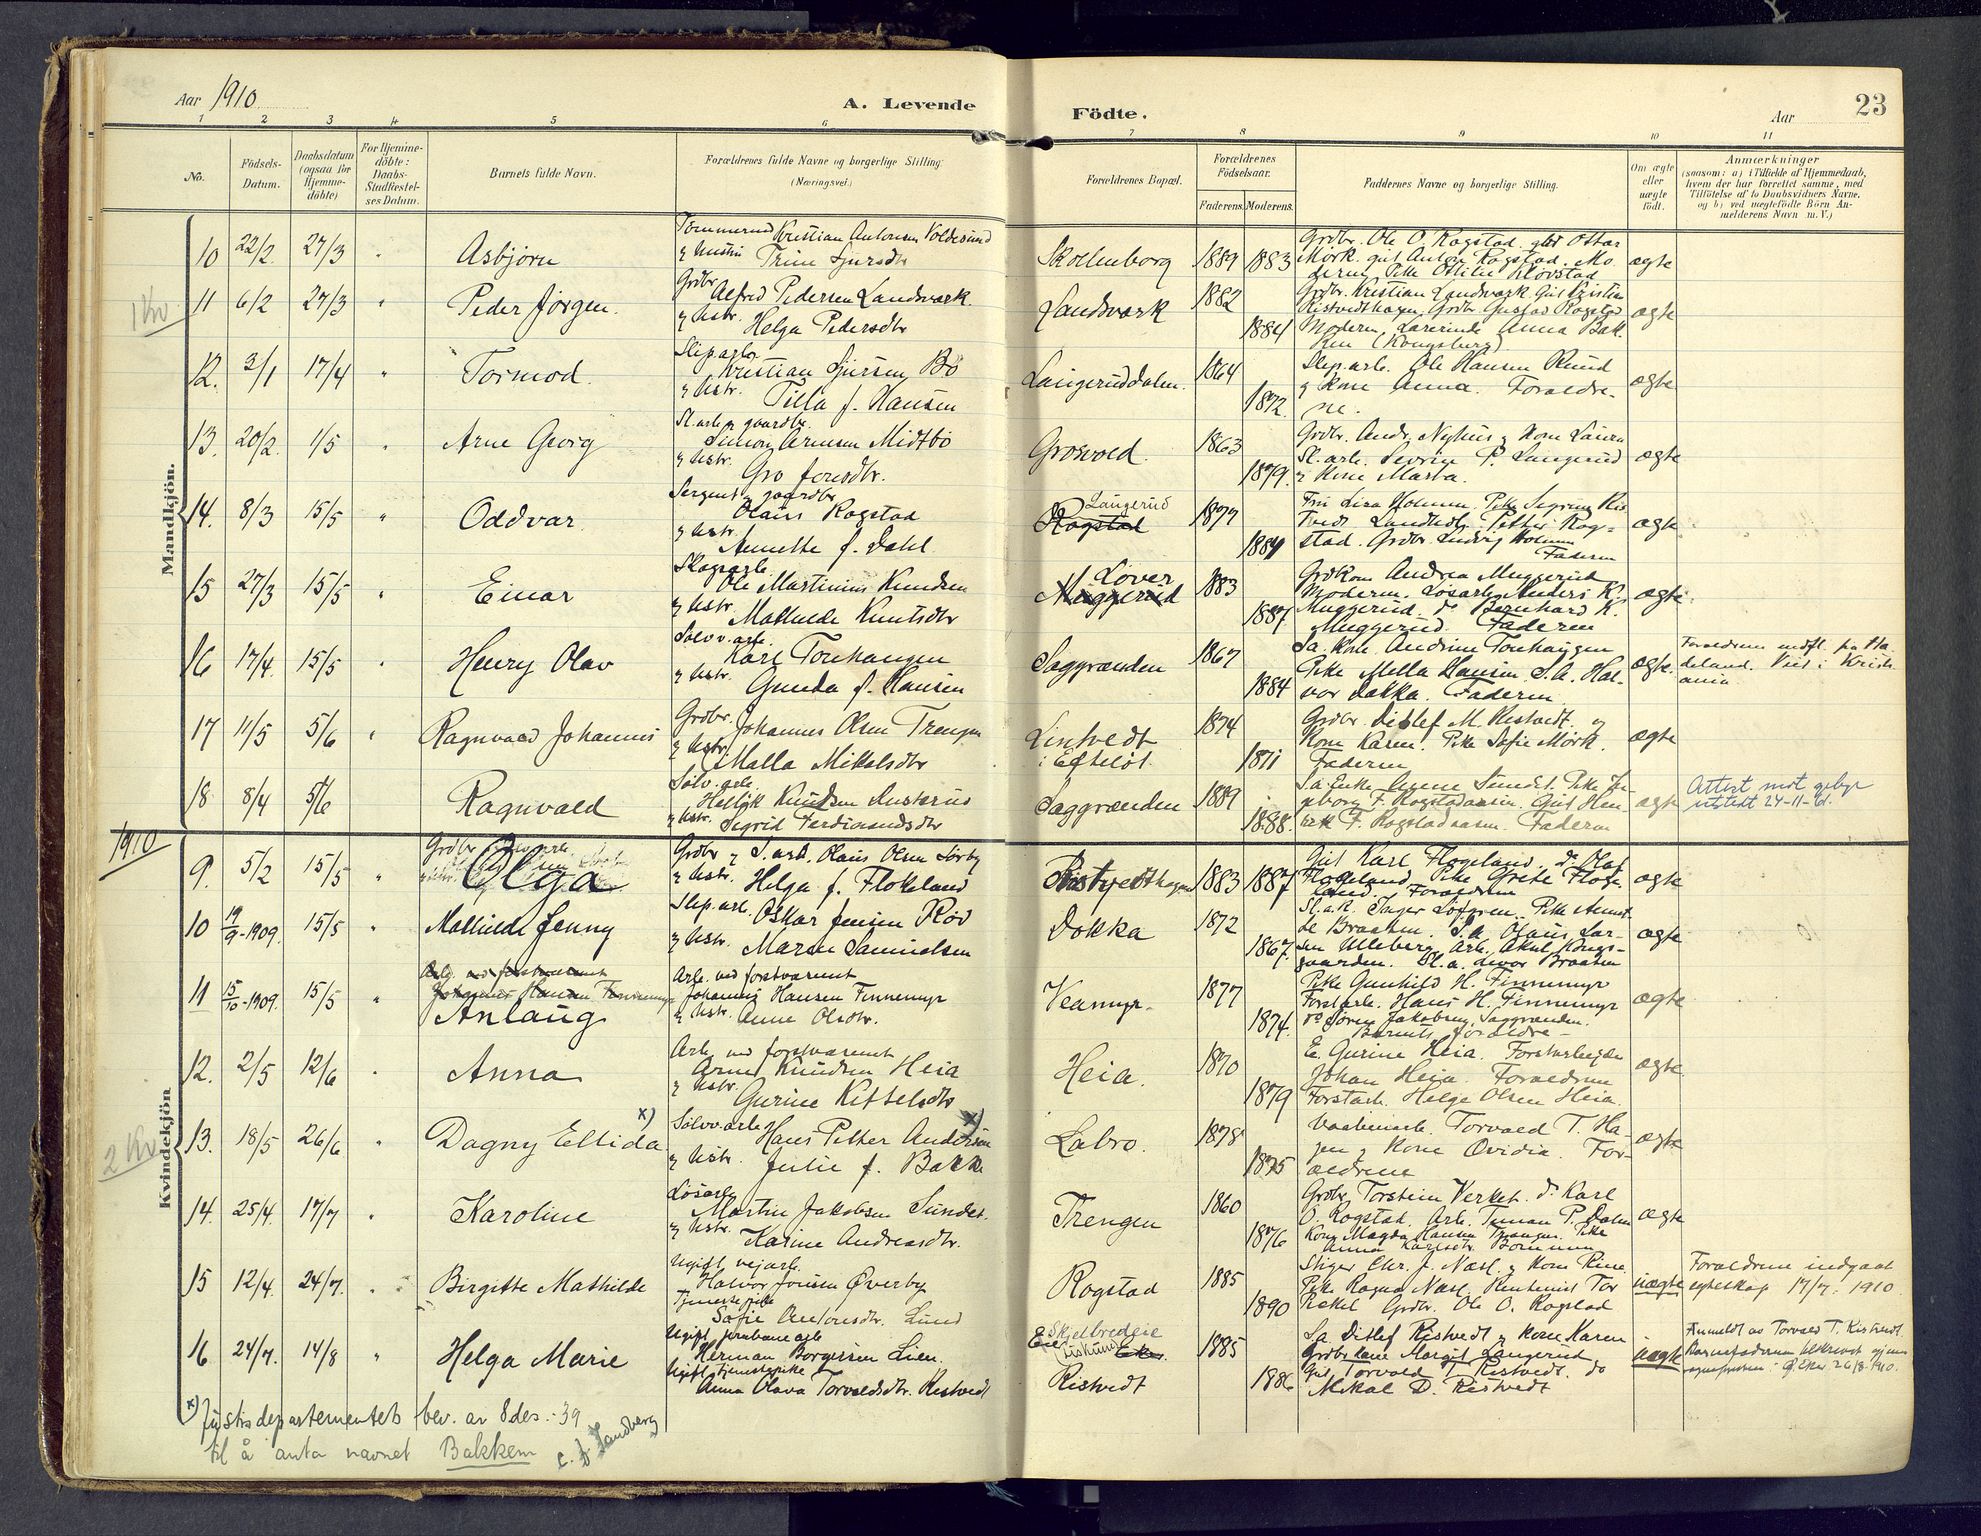 Aar 1910
A. Levende
Födte.
Aar
23
1 2 3 4 5 6 7 8 9 10 11
No.
Födsels-Datum.
Daabsdatum (ogsaa for Hjemme-döbte)
For Hjemme-döbte: Daabs-Stadfæstel-ses Datum.
Barnets fulde Navn.
Forældrenes fulde Navne og borgerlige Stilling (Næringsvei.)
Forældrenes Bopæl.
Forældrenes Födselsaar.
Faderens. Moderens.
Faddernes Navne og borgerlige Stilling.
Om ægte eller uægte födt.
Anmærkninger
(saasom: a) i Tilfælde af Hjemmedaab,
hvem der har forrettet samme, med
Tilföielse af to Daabsvidners Navne.
og b) ved uægtefödte Börn An-
melderens Navn m. V.)
Mandkjön.
10 22/2 27/3 " Asbjørn
Kristian Antonsen Voldesund
& hustru Trine Sjursdtr
Skollenborg 1889 1883
Grdbr. Ole O. Rogstad. Ottar
Mørk. gut Anton Rogstad. Mo-
deren, Pike Ottilie Kløvstad
ægte
1 Kv
11 6/2 27/3 " Peder Jørgen.
Grdbr Alfred Pedersen Landsværk.
& hstr. Helga Pedersdtr
Landsværk 1882 1884
Grdbr. Kristian Landsværk. Gut Kristian
Ristvedthagen, Grdbr Gustav Rogstad
Moderen, Lærerinde Anna Bak-
ken (Kongsberg)
ægte
12. 3/1 17/4 " Tormod.
Slip.arb. Kristian Sjursen Bö
& hstr. Tilla f. Hansen
Langeruddalen. 1864 1872.
Slip.arb. Ole Hansen Rund
& kone Anna. Forældre-
ne.
ægte
13. 20/2. 1/5 " Arne Georg
Sl.arb. & gaardbr. Simon Arnesen Midtbö
& hstr. Gro Jonsdtr.
Grosvold. 1863 1879.
Grdbr. Andr. Nyhus & kone Laura
Sl. arb. Sevrin P. Langerud
& kone Marta.
ægte
14. 8/3 15/5 " Oddvar
Sergent & gaardbr Olaus Rogstad
& hstr. Annette f. Dahl.
Langerud
Rogstad 1877 1884
Landhdl. Petter Rog-
stad. Grdbr Ludvig Holmen
Faderen
ægte
15 27/3 15/5 " Einar
Skogsarb. Ole Martinius Knudsen
& hstr. Mathilde Knutsdtr
Løver
Muggerud 1883 1887
Grdkone Andrea Muggerud
Moderen. Løsarb. Anders K.
Muggerud. do Bernhard K.
Muggerud. Faderen
ægte
16 17/4. 15/5 " Henry Olav
Sølvv.arb. Karl Torehaugen
& hstr. Gunda f. Hansen
Saggrænden 1867 1884
Sa. kone Andrine Torehaugen
Pike Mella Hansen. S.A. Hal-
vor Dokka. Faderen
ægte.
Forældrene indfl. fra Ha-
deland. Viet i Kristi-
ania.
17 11/5 5/6 " Ragnvald Johannes
Grdbr. Johannes Olsen Trengen
& hstr. Malla Mikalsdtr
Lintvedt
i Efteløt. 1874 1871
Grdbr. Ditlef M. Ristvedt. &
kone Karen. Pike Sofie Mørk.
Faderen
ægte
18 8/4 5/6 Ragnvald
Sølv.arb. Hellik Knudsen Austerus
& hstr. Sigrid Ferdinandsdtr
Saggrænden 1889 1888.
F. Rogstadaasen. Faderen
ægte
Attest mot gebyr
utstedt 24-11-61.
1910
Kvindekjön
9. 5/2 15/5 " Olga
Grdbr & S.arb. Olaus Olsen Sørby
& hstr. Helga f. Flokeland
Ristvedthagen 1883 1887
Gut Karl Flogeland. do Olaf
Flogeland Pike Grete Floge-
land. Forældrene
ægte
10 19/9-1909. 15/5 " Mathilde Jenny
Slip.arb. Oskar Jensen Röd
& hstr. Maren Samuelsen
Dokka 1872 1867.
Sl.a.k. Inger Löfgren. Pike Annet-
te Braaten. S.a. Olaus Lar-
sen Ulleberg. Arb. Aksel Kongs-
gaarden. Sl.a. Braaten
ægte
11 15/10-1909. 15/5 "
Arb. ved forstvæsenet
Johannes Hansen Finnemyr
Anlaug
Arb. ved forstvæsenet
Johannes Hansen Finnemyr
& hstr. Anne Olsdtr.
Veamyr. 1877 1874.
Pike Gunhild H. Finnemyr
Forstarb. Hans H. Finnemyr
do Søren Jakobsen, Saggrænden.
Barnets forældre
ægte
12. 2/5 12/6 " Anna
Arb. ved forstvæsenet
Arne Knudsen Heia
& hstr. Gurine Kittelsdtr
Heia. 1870 1879
E. Gurine Heia. Forstarbeider
Johan Heia. Forældrene
Forstarb. Helge Olsen Heia.
ægte.
2 Kv
13. 18/5 26/6 " Dagny Ellida x)
Sølvv.arb. Hans Petter Andersen x)
& hstr. Julie f. Bakke
Labro. 1878 1875
Vaabenarb. Torvald T. Ha-
gen & kone Ovidia. For-
ældrene
ægte
14. 25/4. 17/7 " Karoline
Løsarb. Martin Jakobsen Sundet.
& hstr. Karine Andreasdtr.
Trengen 1860 1876
Grdbr Torstein Verket. do Karl
O. Rogstad. Arb. P. Dalen
Kone Magda Hansen Trengen. Pike
Anna Karlsdtr. Bommen
ægte
15 12/4. 24/7. " Birgitte Mathilde
Ugift vejarb. Halvor Jonsen Øverby
Tjenestepike Sofie Antonsdtr. Lund
Rogstad 1885 1890
Stiger Chr. f. Næsl. & kone Rine.
Pike Ragna Næsl. Kontorist Tor
Grdbr. Ole O. Rogstad
uægte
Forældrene indgaat
egteskap 17/7. 1910
16 24/7. 14/8 " Helga Marie
Ugift jernbanearb. Herman Borgersen Lien.
Ugift tjenestepike Anna Olava Torvaldsdtr. Ristvedt
Skjelbredeie
Eker
Ristvedt 1885 1886
Sa Ditlef Ristvedt & kone Karen
Grdbrkone Margit Langerud
Gut Torvald T. Ristvedt. do
Mikal D. Ristvedt
uægte
Anmeldt av Torvald T. Ristvedt.
Barnefaderen
Ø. Eker 26/8 1910.
x) Justisdepartementets bev. av 8 des. -39
til å anta navnet Bakken C. F. Sandberg